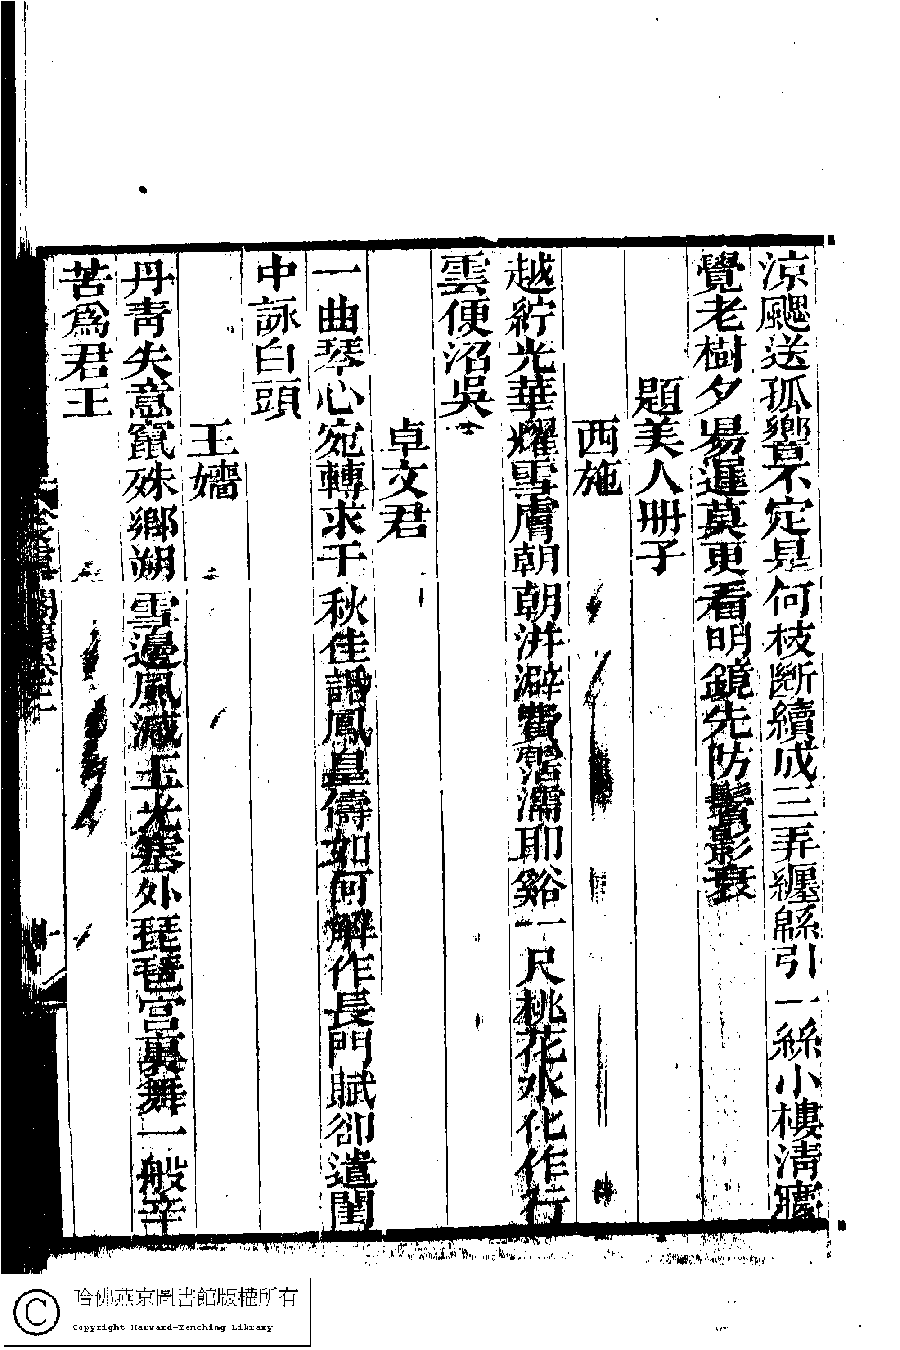 涼颸送孤鄉夢不定是何枝斷續成三弄纏緜引一絲小樓清寤
覺老樹夕陽遲莫更看明鏡先防鬢影衰
題美人冊子
西施
越紵光華耀雪膚朝朝洴澼費霑濡耶谿一尺桃花水化作行
雲便沼吳
卓文君
一曲琴心宛轉求千秋佳話鳳皇儔如何解作長門賦卻遣閨
中詠白頭
王嬙
丹靑失意竄殊鄉朔雪邊風減玉光塞外琵琶宮裏舞一般辛
苦爲君王
哈佛燕京圖書館版權所有
Copyright Harvard-Yenching Library